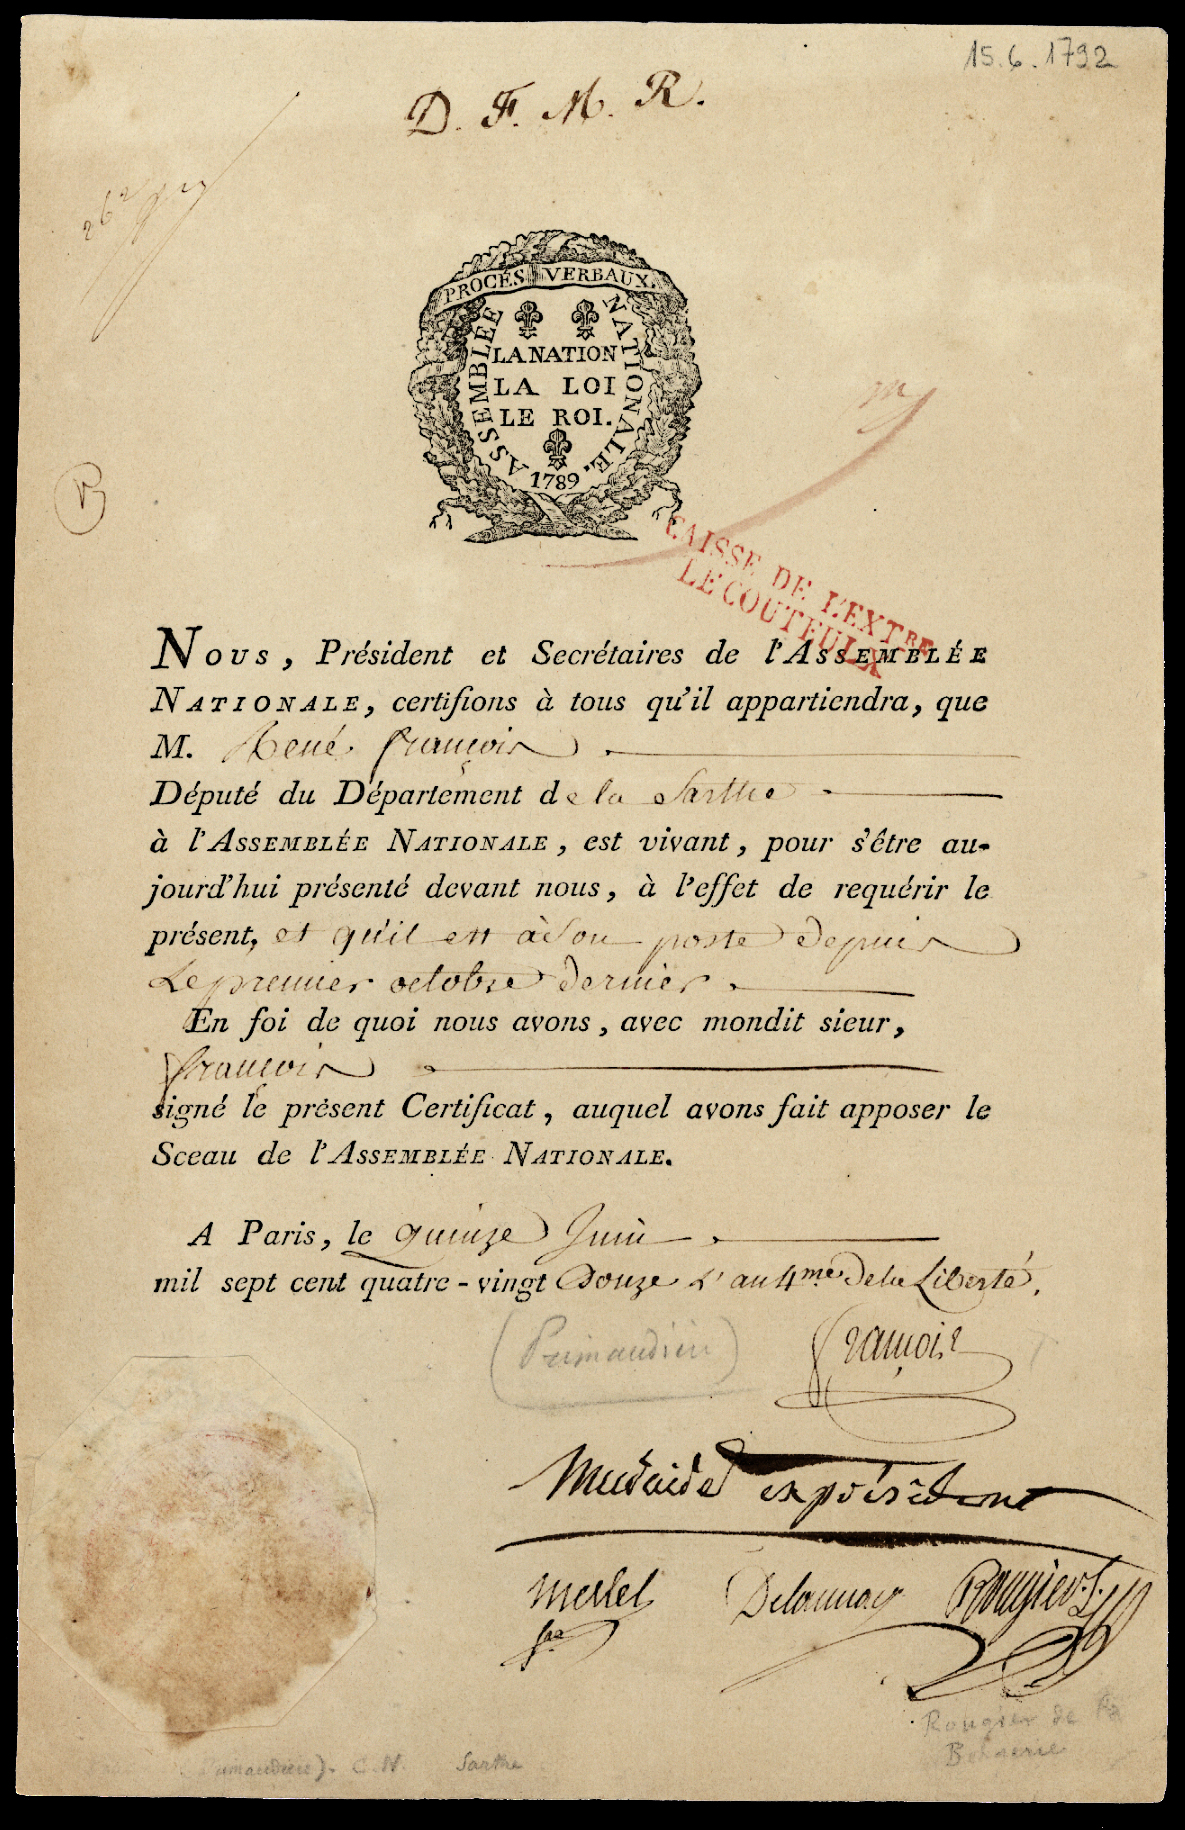 15.6.1792
D. F. M. R.
PROCÉS VERBAUX.
ASSEMBLÉE NATIONALE.
LA NATION
LA LOI
LE ROI.
1789
CAISSE DE L'EXTRE
LECOUTEULX
Nous, Président et Secrétaires de l'Assemblée
Nationale, certifions à tous qu'il appartiendra, que
M. René françois
Député du Département de la Sarthe
à l'Assemblée Nationale, est vivant, pour s'être au-
jourd'hui présenté devant nous, à l'effet de requérir le
présent, et qu'il est à Son poste depuis
Le premier octobre dernier.
En foi de quoi nous avons, avec mondit sieur,
françois
signé le présent Certificat, auquel avons fait apposer le
Sceau de l'Assemblée Nationale.
A Paris, le quinze Juin
mil sept cent quatre-vingt Douze L'an 4me De la Liberté.
(Primaudière)
françois
ex président
merlet
Delaunay Rougier
Rougier de la
Bergerie
C.N. Sarthe